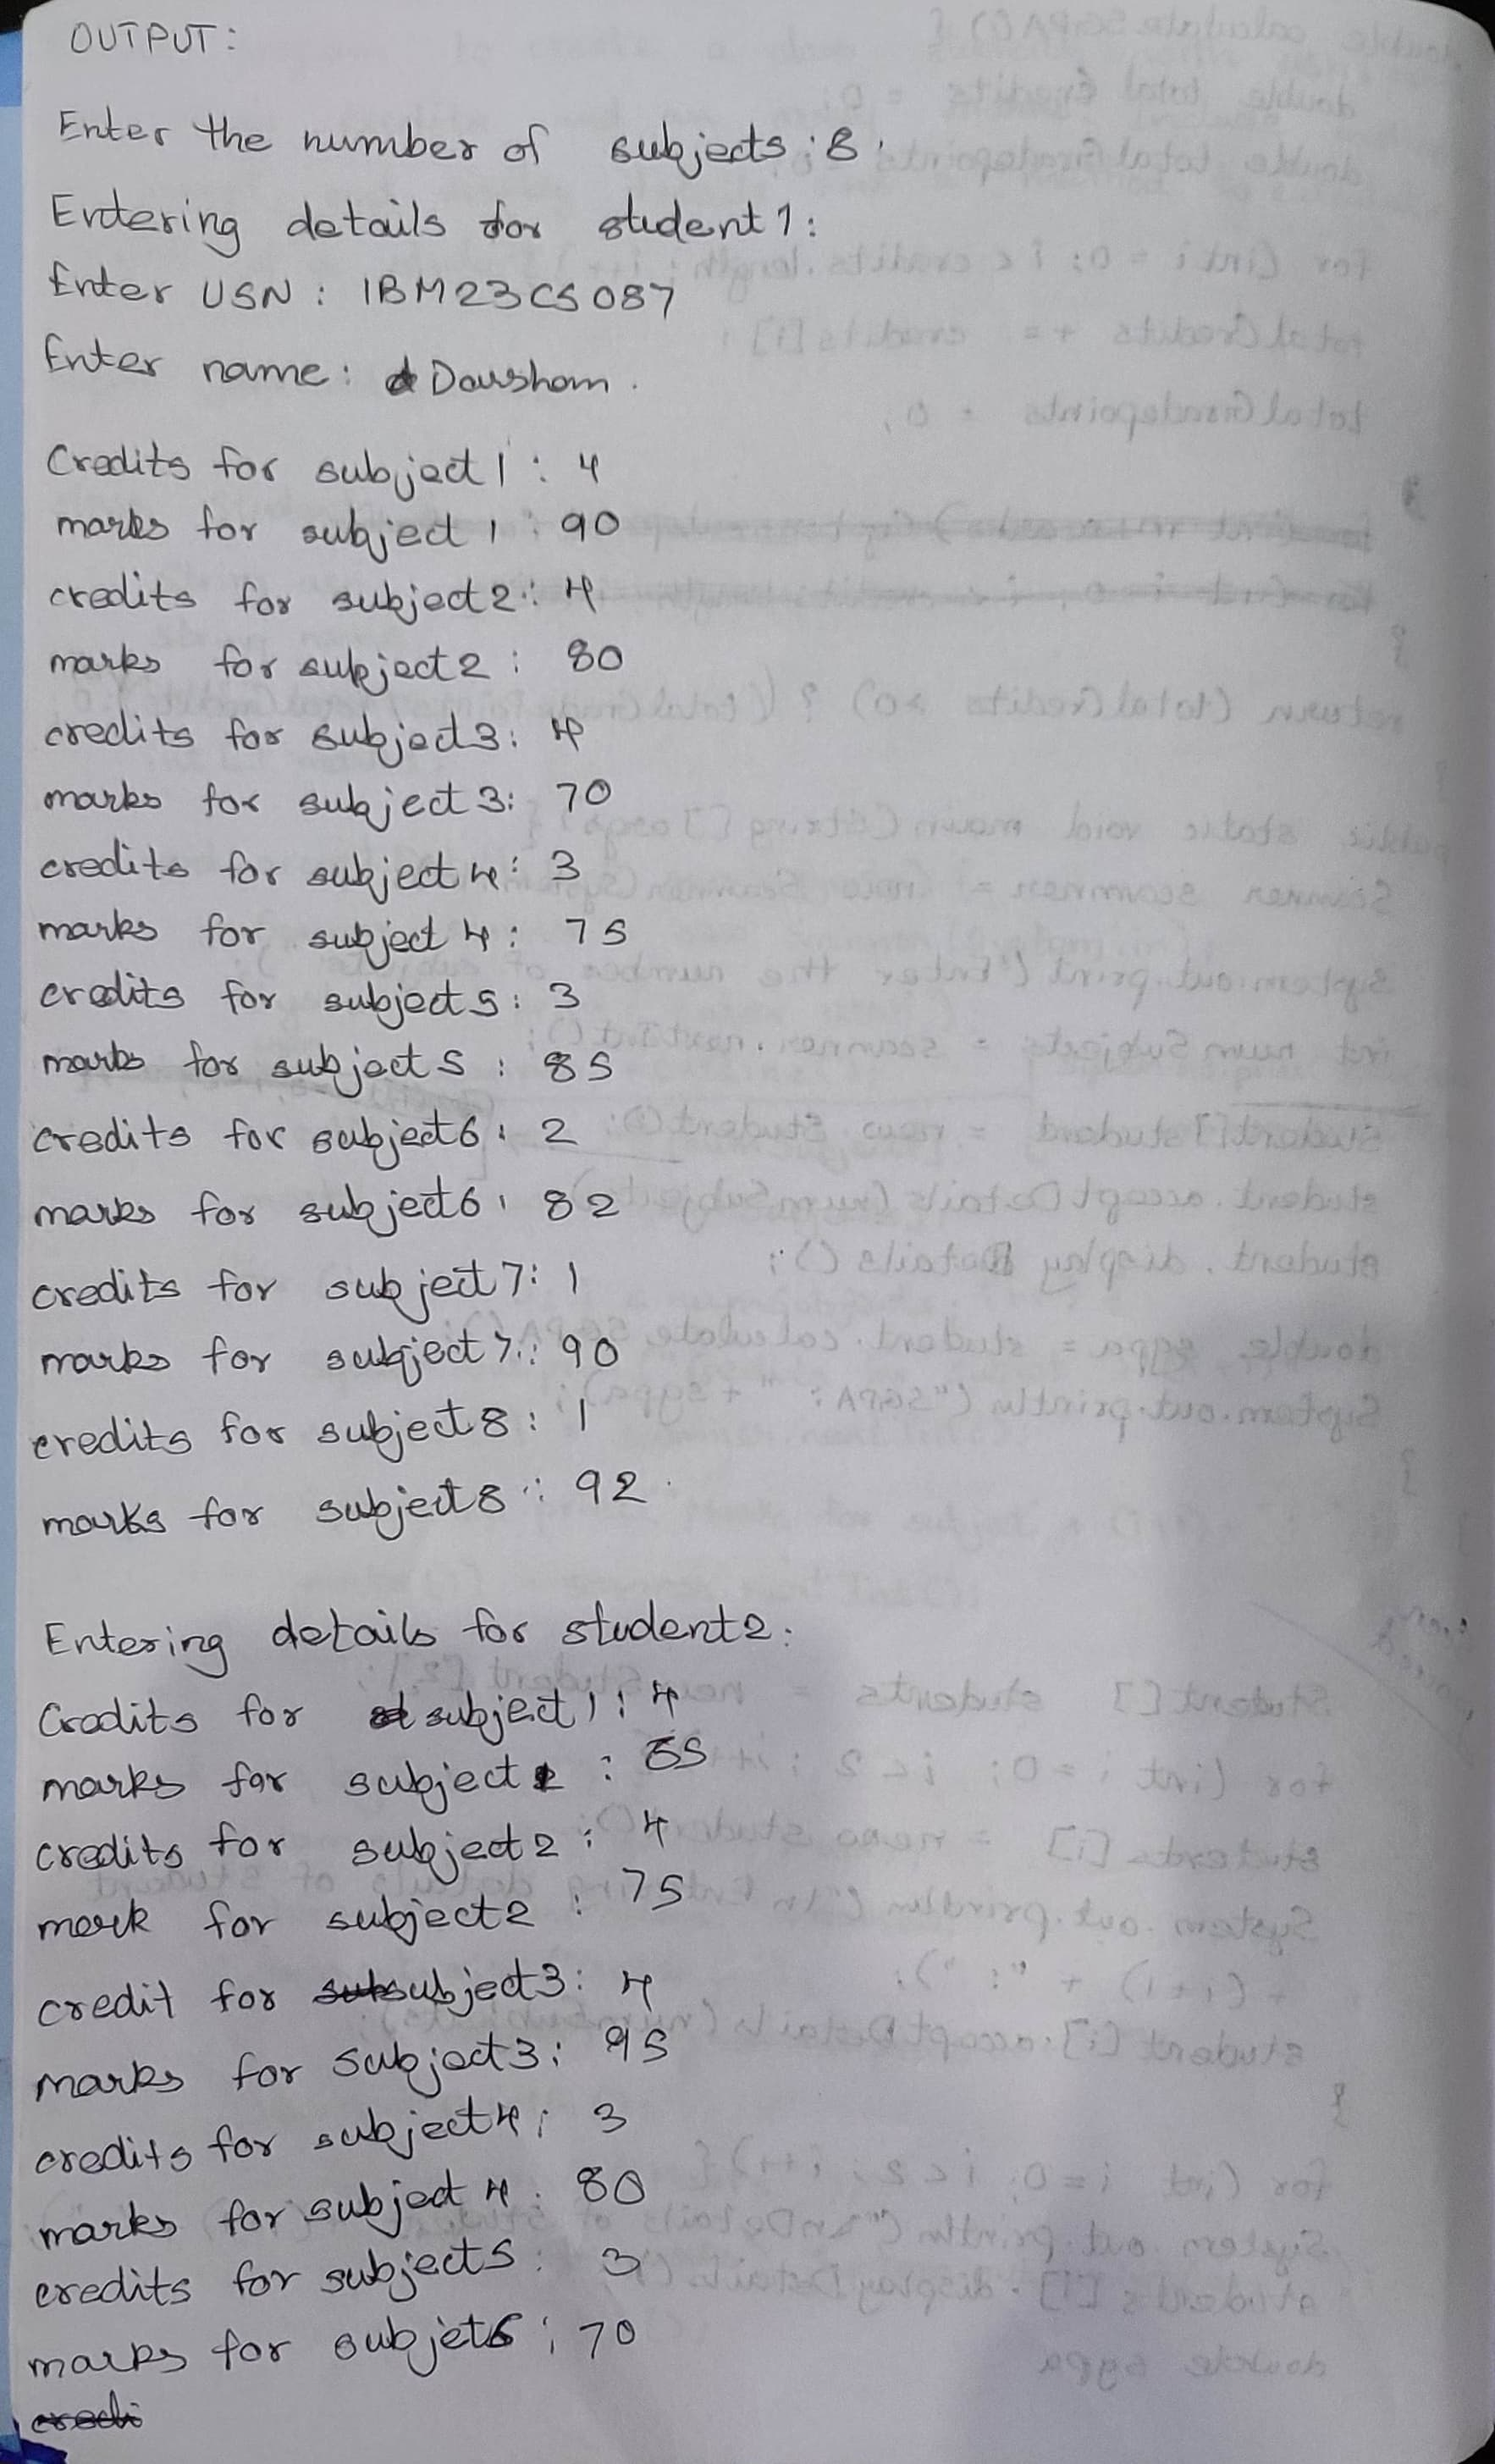 OUTPUT:
Enter the number of subjects : 8.
Entering details for student 1:
Enter USN : 1BM23CS087
Enter name : Darshan.
Credits for subject 1 : 4
marks for subject 1 : 90
credits for subject 2 : 4
marks for subject 2 : 80
credits for subject 3 : 4
marks for subject 3 : 70
credits for subject 4 : 3
marks for subject 4 : 75
credits for subject 5 : 3
marks for subject 5 : 85
credits for subject 6 : 2
marks for subject 6 : 82
credits for subject 7 : 1
marks for subject 7 : 90
credits for subject 8 : 1
marks for subject 8 : 92
Entering details for student 2.
Credits for subject 1 : 4
marks for subject 1 :
credits for subject 2 : 4
mark for subject 2 : 75
credit for subject 3 : 4
marks for subject 3 : 95
credits for subject 4 : 3
marks for subject 4 : 80
credits for subject 5 : 3
marks for subjet : 70